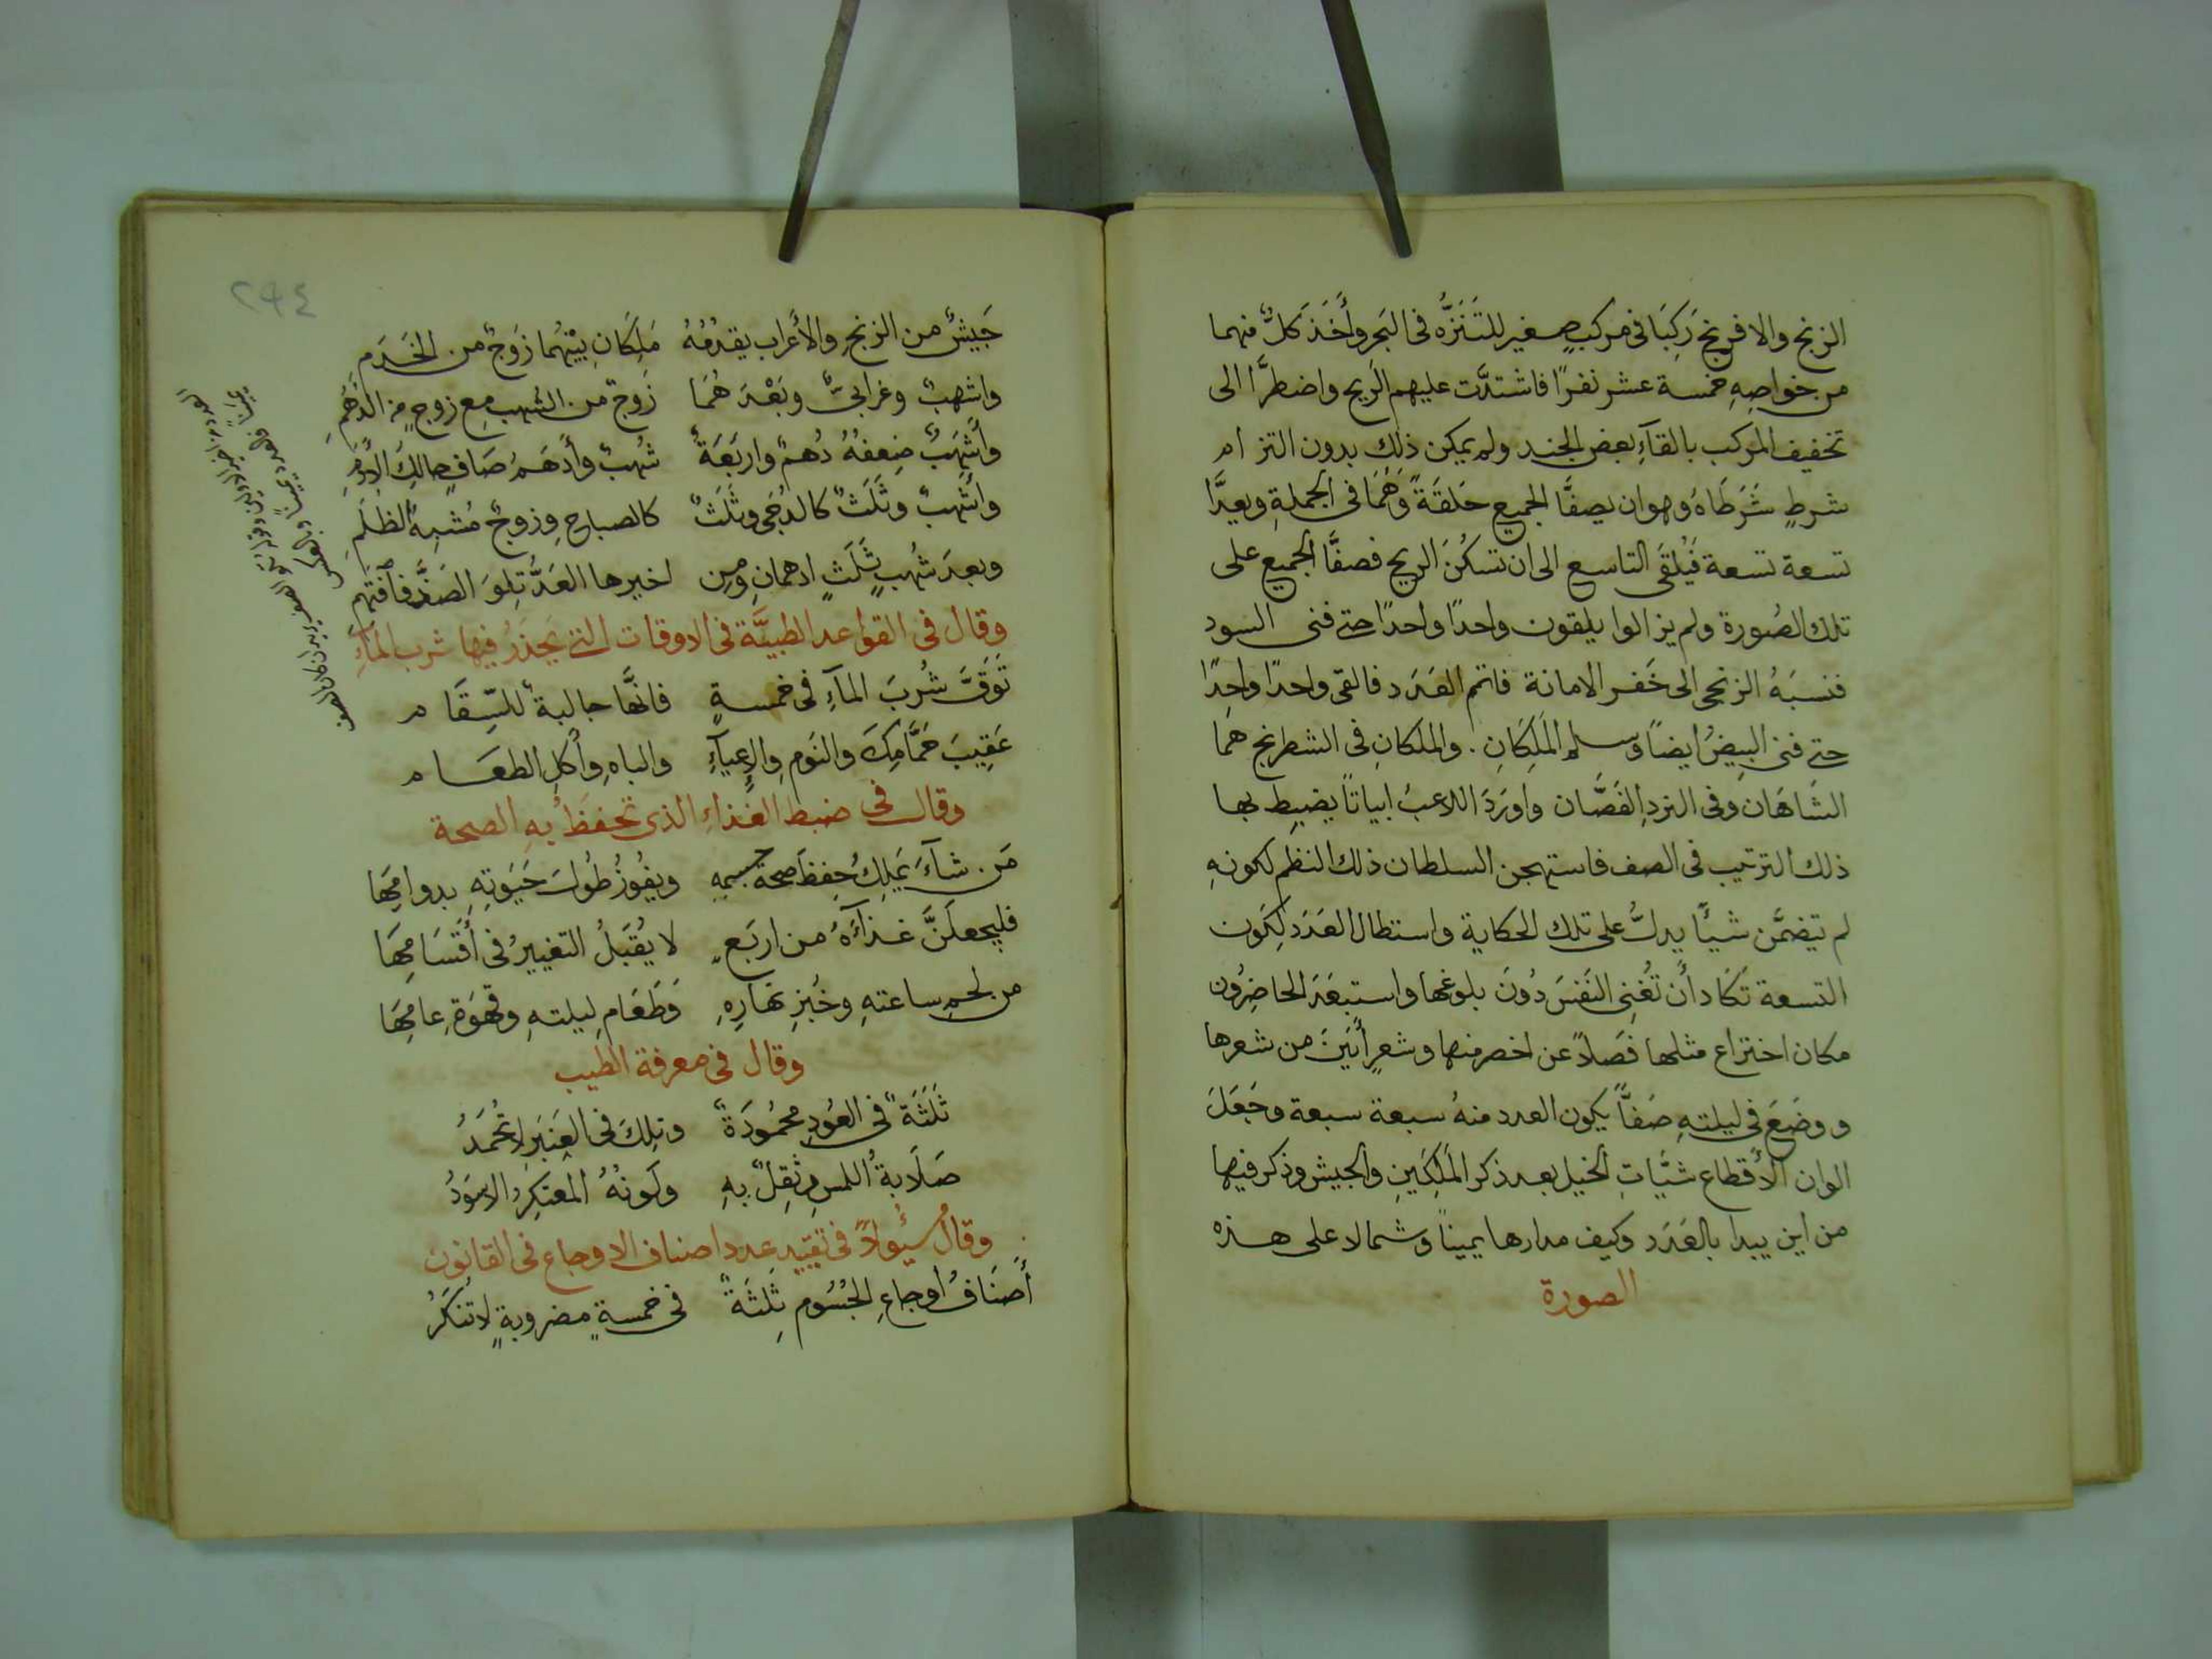 الزنج والافرنج رَكِبَا فى مركبٍ صغير للتَنَزُّه فى البحر وأَخَذَ كلٌّ منهما
من خواصِهِ خمسة عشر نفرًا فاشتدَّت عليهم الريح واضطرَّا الى
تخفيف المركب بالقآءِ بعض الجند ولم يمكن ذلك بدون التزام
شرطٍ شَرَطَاهُ وهو ان يصفَّا الجميع حَلقَةً وَهُمَا فى الجملةِ ويعدَّا
تسعة تسعة فَيُلقَى التاسع الى ان تسكُنَ الريح فصفَّا الجميع على
تلك الصُورة ولم يزالوا يلقون واحدًا واحدًا حتى فنى السود
فنسبَهُ الزنجى الى خَفر الامانة فاتم العَدَد فالقى واحدًا واحدًا
حتى فنى البِيضُ ايضاً وسلم المَلِكَانِ . والملكانِ فى الشطرنج هَمَا
الشَاهَان وفى النردِ الفَصَّان واورَدَ اللاعبُ ابياتاً يضبِط بها
ذلك الترتيب فى الصف فاستهجن السلطان ذلك النظم لكونهِ
لم يتضمَّن شيئًا يدلُّ على تلك الحكاية واستطال العَدَد لِكَون
التسعة تَكَاد أَن تُغنِى النَفسَ دُونَ بلوغها واستبعَدَ الحاضِرُون
مكان اختراع مثلها فَضلاً عن اخصر منها وشعرٍ أَبيَنَ من شعرها
ووضَعَ فى ليلتهِ صَفاًّ يكون العدد منهُ سبعة سبعة وجَعَلَ
الوان الأَقطاع شيَّاتِ الخيل بعد ذكر المَلِكَينِ والجيش وذكر فيها
من اين يبدا بالعَدَد وكيف مدارها يميناً وشمالا على هذه
الصورة
٢٩٤
جَيشٌ من الزنجِ والأعراب يقدُمُهُ مَلِكَانِ بَيْنَهُما زَوجٌ من الخَدَم
واشهبٌ وغرابىٌّ وبَعْدَ هُمَا زَوجٌ من الشُهب مع زوجٍ من الدُهُمِ
وأشهَبٌ ضِعفُهُ دُهمٌ واربَعَةٌ شُهبٌ وأَدهَمُ صَافٍ حالِكُ الادُمِ
واشهبٌ وثَلَثٌ كالدُجَى وثَلَثٌ كالصباحِ وزوجٌ مُشبِهُ الظلَمِ
وبعدَ شُهبٍ ثَلَثٍ ادهمانِ ومِن اخيرها العَدُّ تِلوَ الصَفِّ فافتَهم
وقال فى القواعد الطبيَّة فى الاوقات التى يَحذَرُ فيها شرب المآءِ
تَوَقَّ شُربَ المآءِ فى خمسةٍ فانَّها جالبةٌ للسّقَام
عَقِيبَ حَمَّامِكَ والنَومِ والاِعيآءِ والباهِ وأكلِ الطعَام
وقال فى ضبط الغذاءِ الذى تحفظُ بهِ الصحة
مَن شآءَ يَملِكُ حِفظَ صحة جسمِهِ ويفُوزُ طُولَ حَيَوتِهِ بدوامِهَا
فليجعلَنَّ غذآءَهُ من اربَعٍ لا يُقبَلُ التغييرُ فى أَقسَامِهَا
من لحمِ ساعتهِ وخُبزِ نَهَارِهِ وَطَعَامِ ليلتهِ وقَهوَةِ عامِهَا
وقال فى معرفة الطيب
ثَلَثَةٌ فى العُودِ محمُودَةٌ وتِلكَ فى العنبَرِ لا تُحمَدُ
صَلَابةُ اللمسِ وثِقلٌ بهِ ولَونُهُ المعتكِرُ الاسوَدُ
وقال سيُوالاً فى تقييد عدد اصناف الاوجاع فى القانون
أَصنَافُ اوجاعِ الجُسُوم ثَلثَةٌ فى خمسةٍ مضروبةٍ لا تُنكَرُ